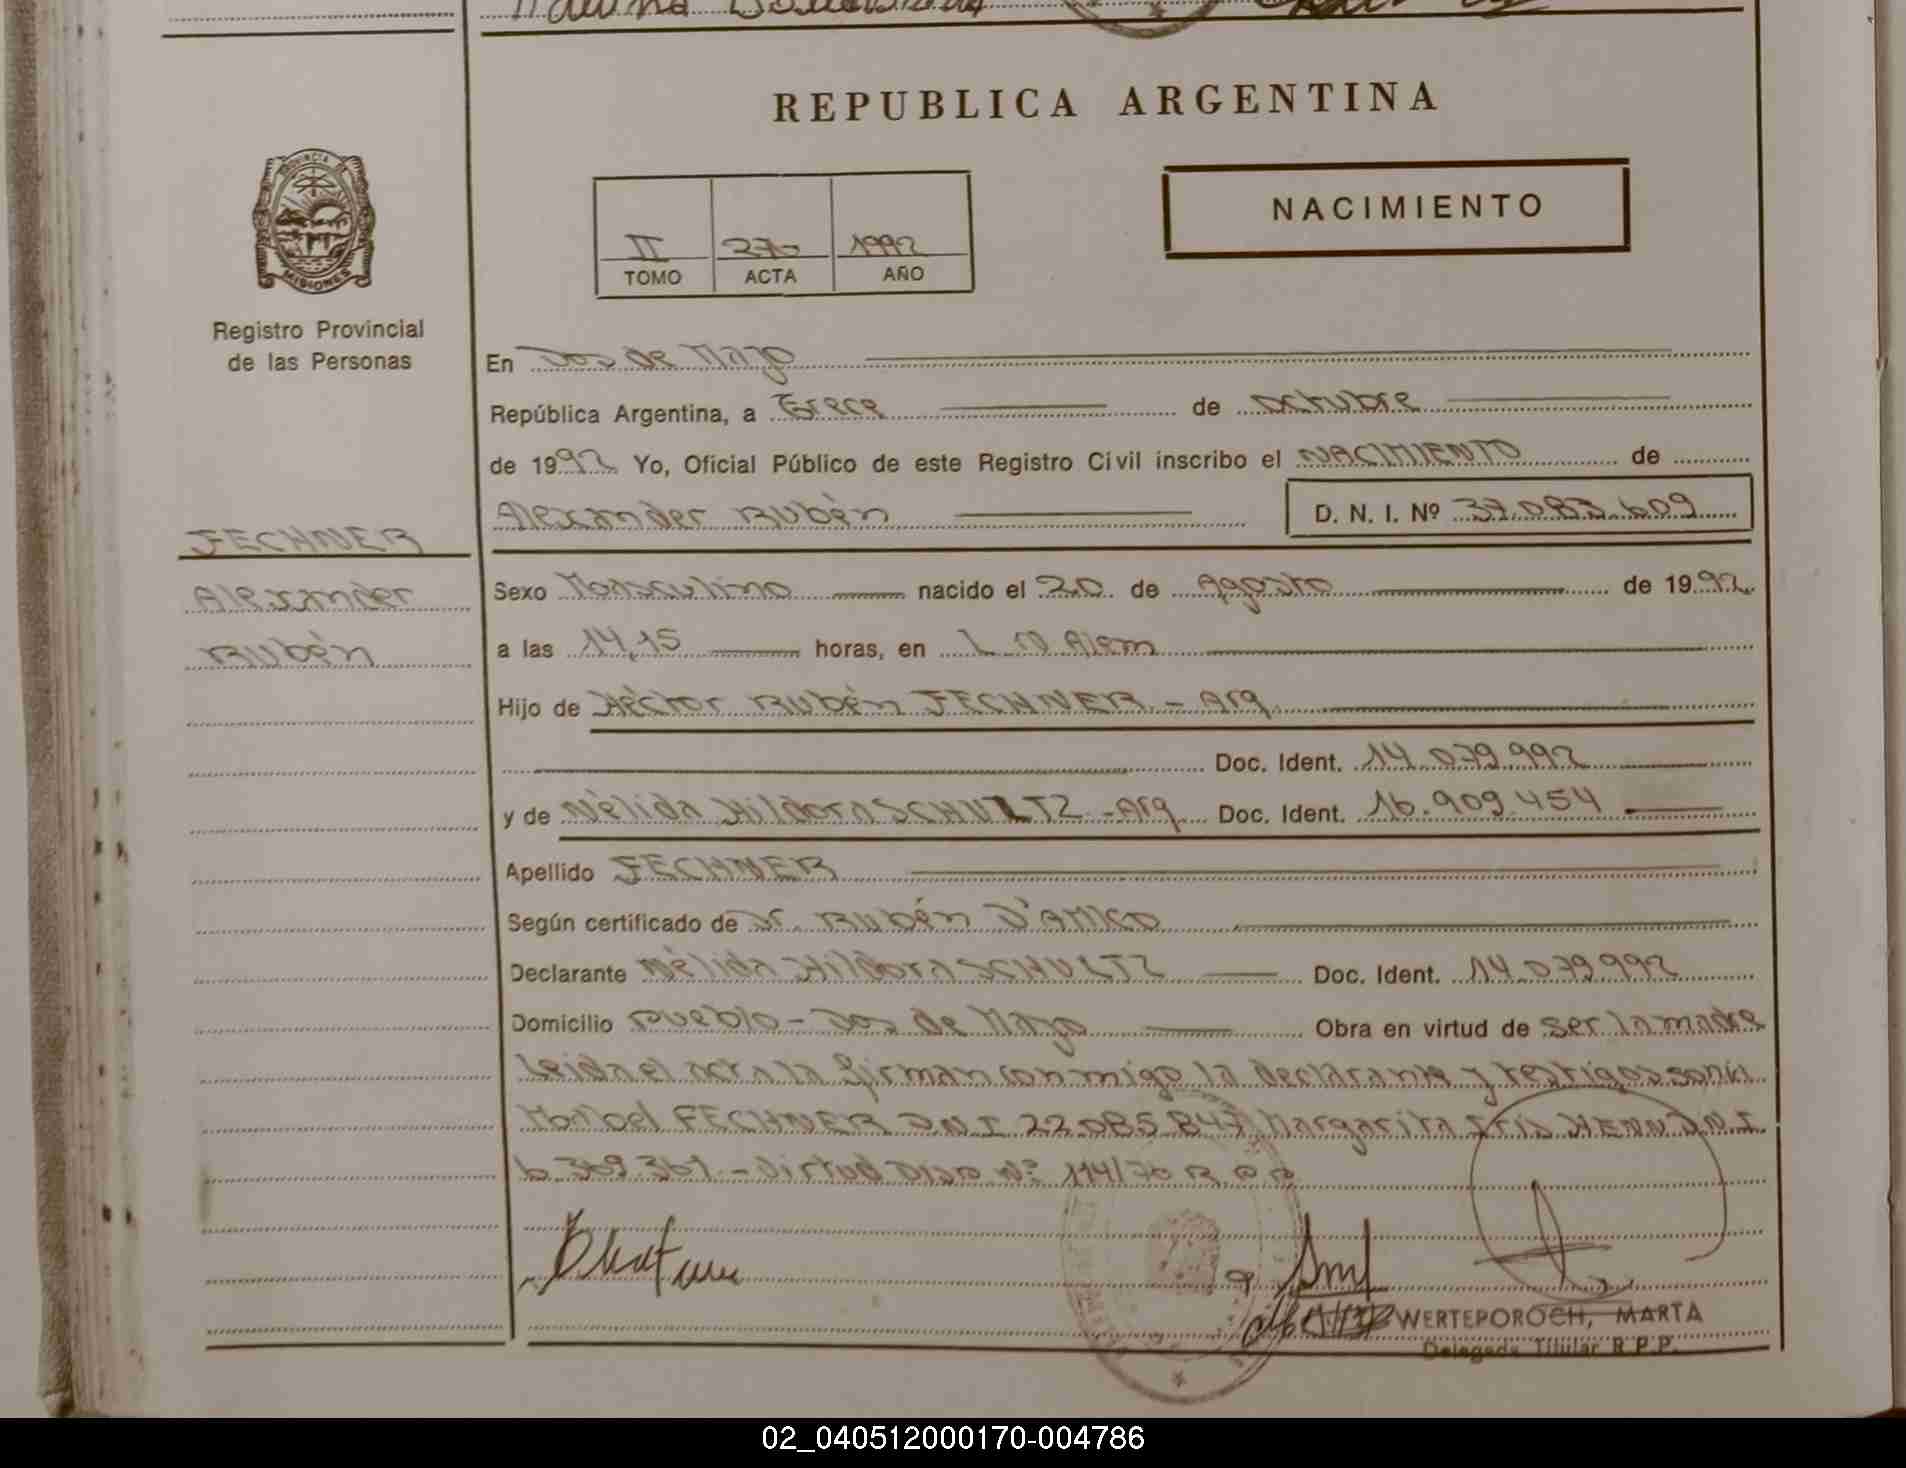 REPUBLICA ARGENTINA
PROVINCIA
MISIONES
Registro Provincial
de las Personas
II 270 1992
TOMO ACTA AÑO
NACIMIENTO
En Dos de Mayo
República Argentina, a Trece de octubre
de 1992 Yo, Oficial Público de este Registro Civil inscribo el NACIMIENTO de
Alexander Rubén D. N. I. Nº 37.083.609
FECHNER
Alexander
Rubén
Sexo Masculino nacido el 20 de Agosto de 1992
a las 14,15 horas, en L. N. Alem
Hijo de Héctor Rubén FECHNER - Arg
Doc. Ident. 14.079.992
y de Nélida Hildora SCHULTZ - Arg Doc. Ident. 16.909.454
Apellido FECHNER
Según certificado de Dr. Rubén D'AMICO
Declarante Nélida Hildora SCHULTZ Doc. Ident. 14.079.992
Domicilio Pueblo - Dos de Mayo Obra en virtud de ser la madre
Leida el acta la firman conmigo la declarante y testigos
FECHNER D.N.I 22.085.847 Margarita Iris HENN D.N.I
6.369.361 - Virtud Disp. Nº 114/70 R.P.P
WERTEPOROCH, MARTA
Delegada Titular R.P.P.
02_040512000170-004786